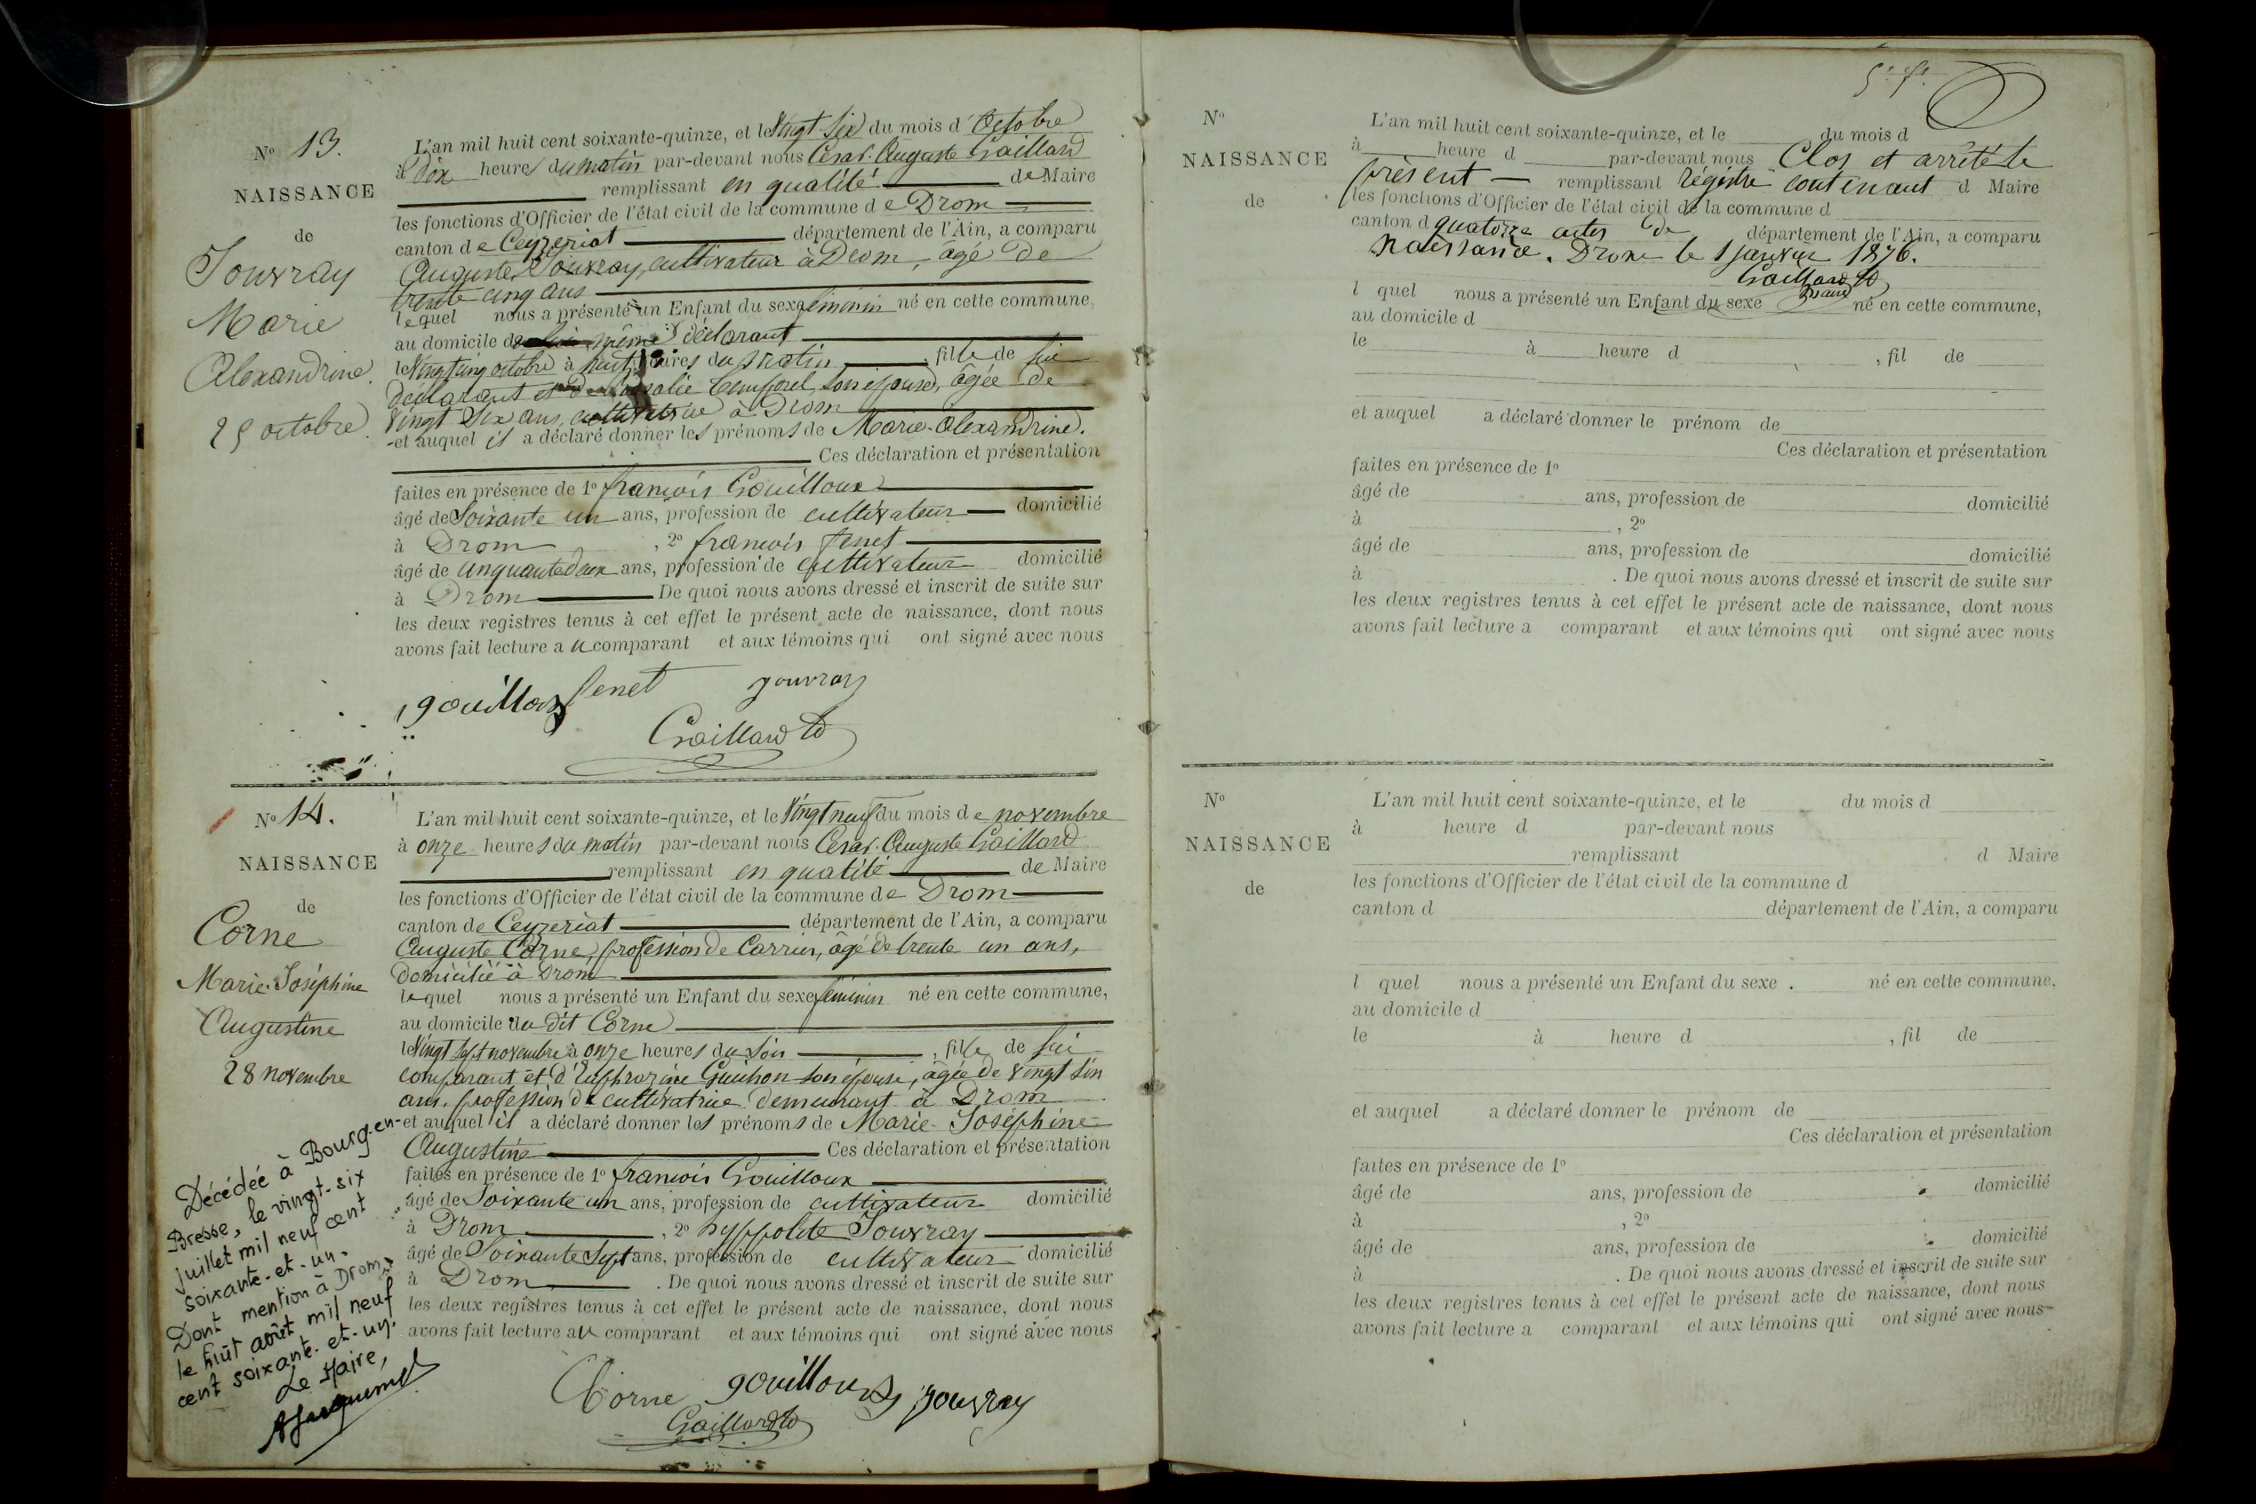 No 13.
NAISSANCE
de
Jouvray
Marie
Alexandrine.
25 octobre.
L'an mil huit cent soixante-quinze, et le Vingt Six du mois d'Octobre
à Dix heures du matin par-devant nous César Auguste Gaillard
remplissant en qualité de Maire
les fonctions d'Officier de l'état civil de la commune de Drom
canton de Ceyzeriat département de l'Ain, a comparu
Auguste Jouvray, cultivateur à Drom, âgé de
trente cinq ans
lequel nous a présenté un Enfant du sexe féminin né en cette commune,
au domicile de lui même déclarant
le Vingt cinq octobre à huit heures du matin, fille de lui
déclarant et de Rosalie son épouse, âgée de
Vingt Six ans, cultivatrice à Drom
et auquel il a déclaré donner les prénoms de Marie-Alexandrine.
Ces déclaration et présentation
faites en présence de 1o françois Gouilloux
âgé de Soixante un ans, profession de cultivateur domicilié
à Drom, 2o françois fenet
âgé de cinquante deux ans, profession de cultivateur domicilié
à Drom De quoi nous avons dressé et inscrit de suite sur
les deux registres tenus à cet effet le présent acte de naissance, dont nous
avons fait lecture au comparant et aux témoins qui ont signé avec nous
gouilloux fenet jouvray
Gaillard
No 14.
NAISSANCE
de
Corne
Marie-Joséphine
Augustine
28 novembre
L'an mil huit cent soixante-quinze, et le Vingt neuf du mois de novembre
à onze heures du matin par-devant nous César Auguste Gaillard
remplissant en qualité de Maire
les fonctions d'Officier de l'état civil de la commune de Drom
canton de Ceyzeriat département de l'Ain, a comparu
Auguste Corne, profession de Carrier, âgé de trente un ans,
domicilié à Drom
lequel nous a présenté un Enfant du sexe féminin né en cette commune,
au domicile du dit Corne
le Vingt sept novembre à onze heures du soir, fille de lui
comparant et d'Euphrozine Guichon son épouse, âgée de vingt Six
ans, profession de cultivatrice demeurant à Drom
et auquel il a déclaré donner les prénoms de Marie-Joséphine-
Augustine Ces déclaration et présentation
faites en présence de 1o françois Gouilloux
âgé de Soixante un ans, profession de cultivateur domicilié
à Drom, 2o hyppolite Jouvray
âgé de Soixante Sept ans, profession de cultivateur domicilié
à Drom. De quoi nous avons dressé et inscrit de suite sur
les deux registres tenus à cet effet le présent acte de naissance, dont nous
avons fait lecture au comparant et aux témoins qui ont signé avec nous
Corne gouilloux jouvray
Gaillard
Décédée à Bourg-en-
Bresse, le vingt-six
juillet mil neuf cent
soixante-et-un.
Dont mention à Drom,
le huit août mil neuf
cent soixante-et-un.
Le Maire,
No
NAISSANCE
de
L'an mil huit cent soixante-quinze, et le du mois d
à heure d par-devant nous Clos et arrêté le
présent remplissant régistre contenant d Maire
les fonctions d'Officier de l'état civil de la commune d
canton d quatorze actes de département de l'Ain, a comparu
Naissance. Drom le 1 janvier 1876.
Gaillard
Maire
l quel nous a présenté un Enfant du sexe né en cette commune,
au domicile d
le à heure d, fil de
et auquel a déclaré donner le prénom de
Ces déclaration et présentation
faites en présence de 1o
âgé de ans, profession de domicilié
à, 2o
âgé de ans, profession de domicilié
à. De quoi nous avons dressé et inscrit de suite sur
les deux registres tenus à cet effet le présent acte de naissance, dont nous
avons fait lecture a comparant et aux témoins qui ont signé avec nous
No
NAISSANCE
de
L'an mil huit cent soixante-quinze, et le du mois d
à heure d par-devant nous
remplissant d Maire
les fonctions d'Officier de l'état civil de la commune d
canton d département de l'Ain, a comparu
l quel nous a présenté un Enfant du sexe né en cette commune,
au domicile d
le à heure d, fil de
et auquel a déclaré donner le prénom de
Ces déclaration et présentation
faites en présence de 1o
âgé de ans, profession de domicilié
à, 2o
âgé de ans, profession de domicilié
à. De quoi nous avons dressé et inscrit de suite sur
les deux registres tenus à cet effet le présent acte de naissance, dont nous
avons fait lecture a comparant et aux témoins qui ont signé avec nous